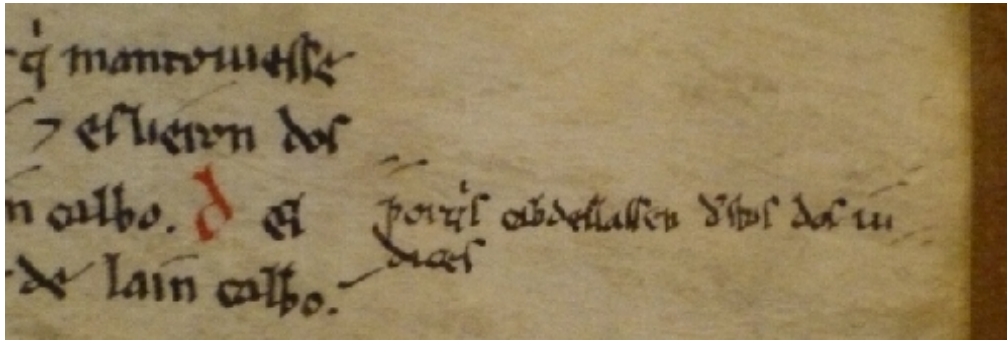 q̄ mantouiesse
⁊ eslieron dos
n calbo. d el
de lain calbo.
por q̇l cabdellassen estos dos iu
dices